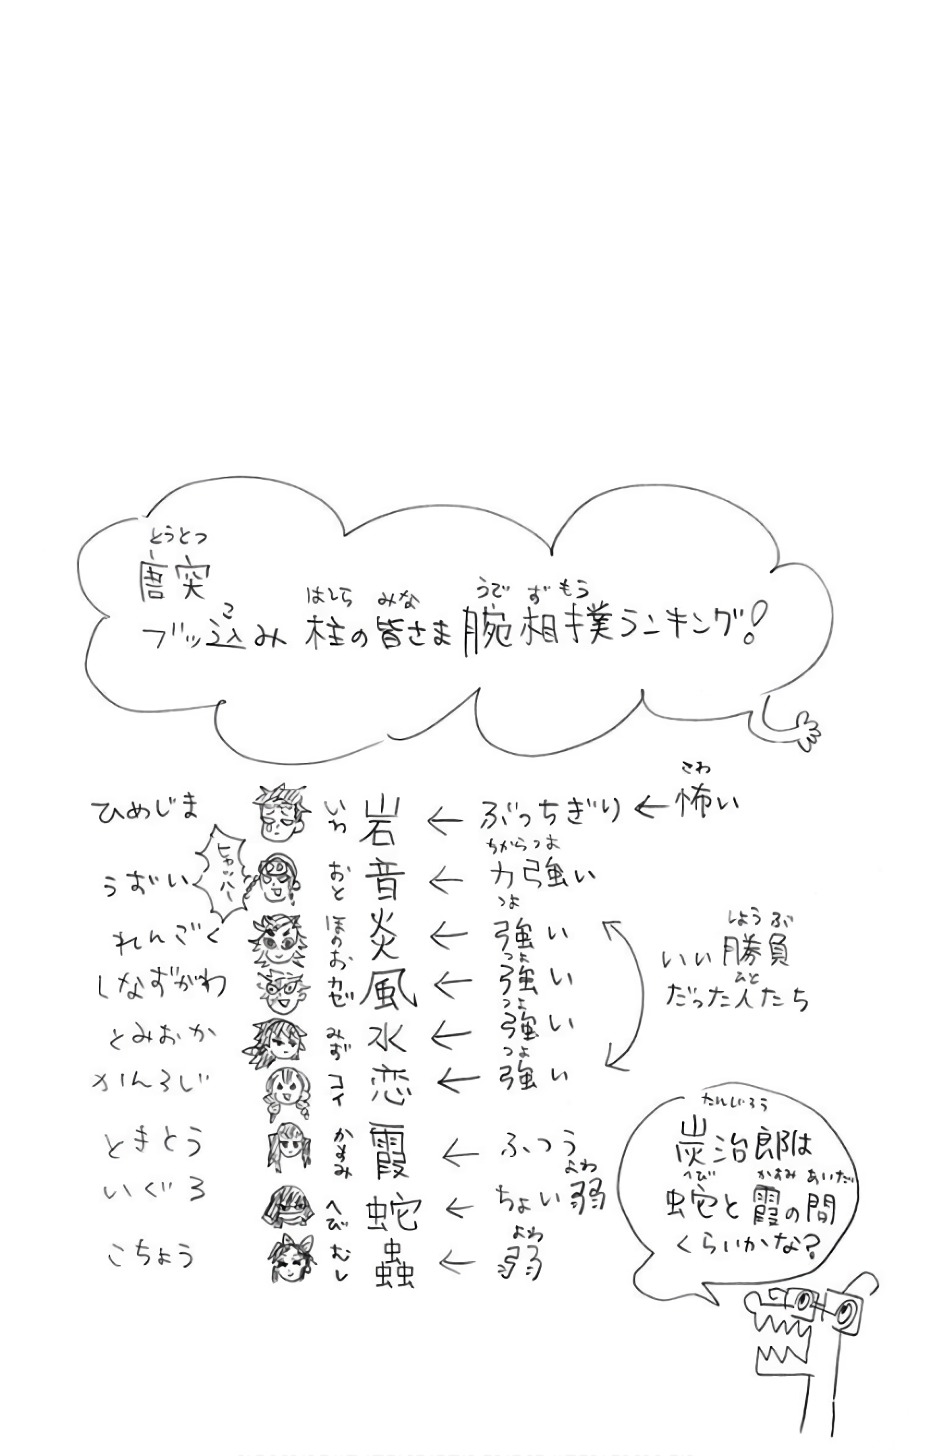 唐突
ブッ込み 柱の皆さま 腕相撲ランキング!
ひめじま 岩 ← ぶっちぎり ← 怖い
うずい ヒャッハー 音 ← 力強い
れんごく 炎 ← 強い
しなずがわ 風 ← 強い
とみおか 水 ← 強い
かんろじ 恋 ← 強い
ときとう 霞 ← ふつう
いぐろ 蛇 ← ちょい弱
こちょう 蟲 ← 弱
いい勝負
だった人たち
炭治郎は
蛇と霞の間
くらいかな?